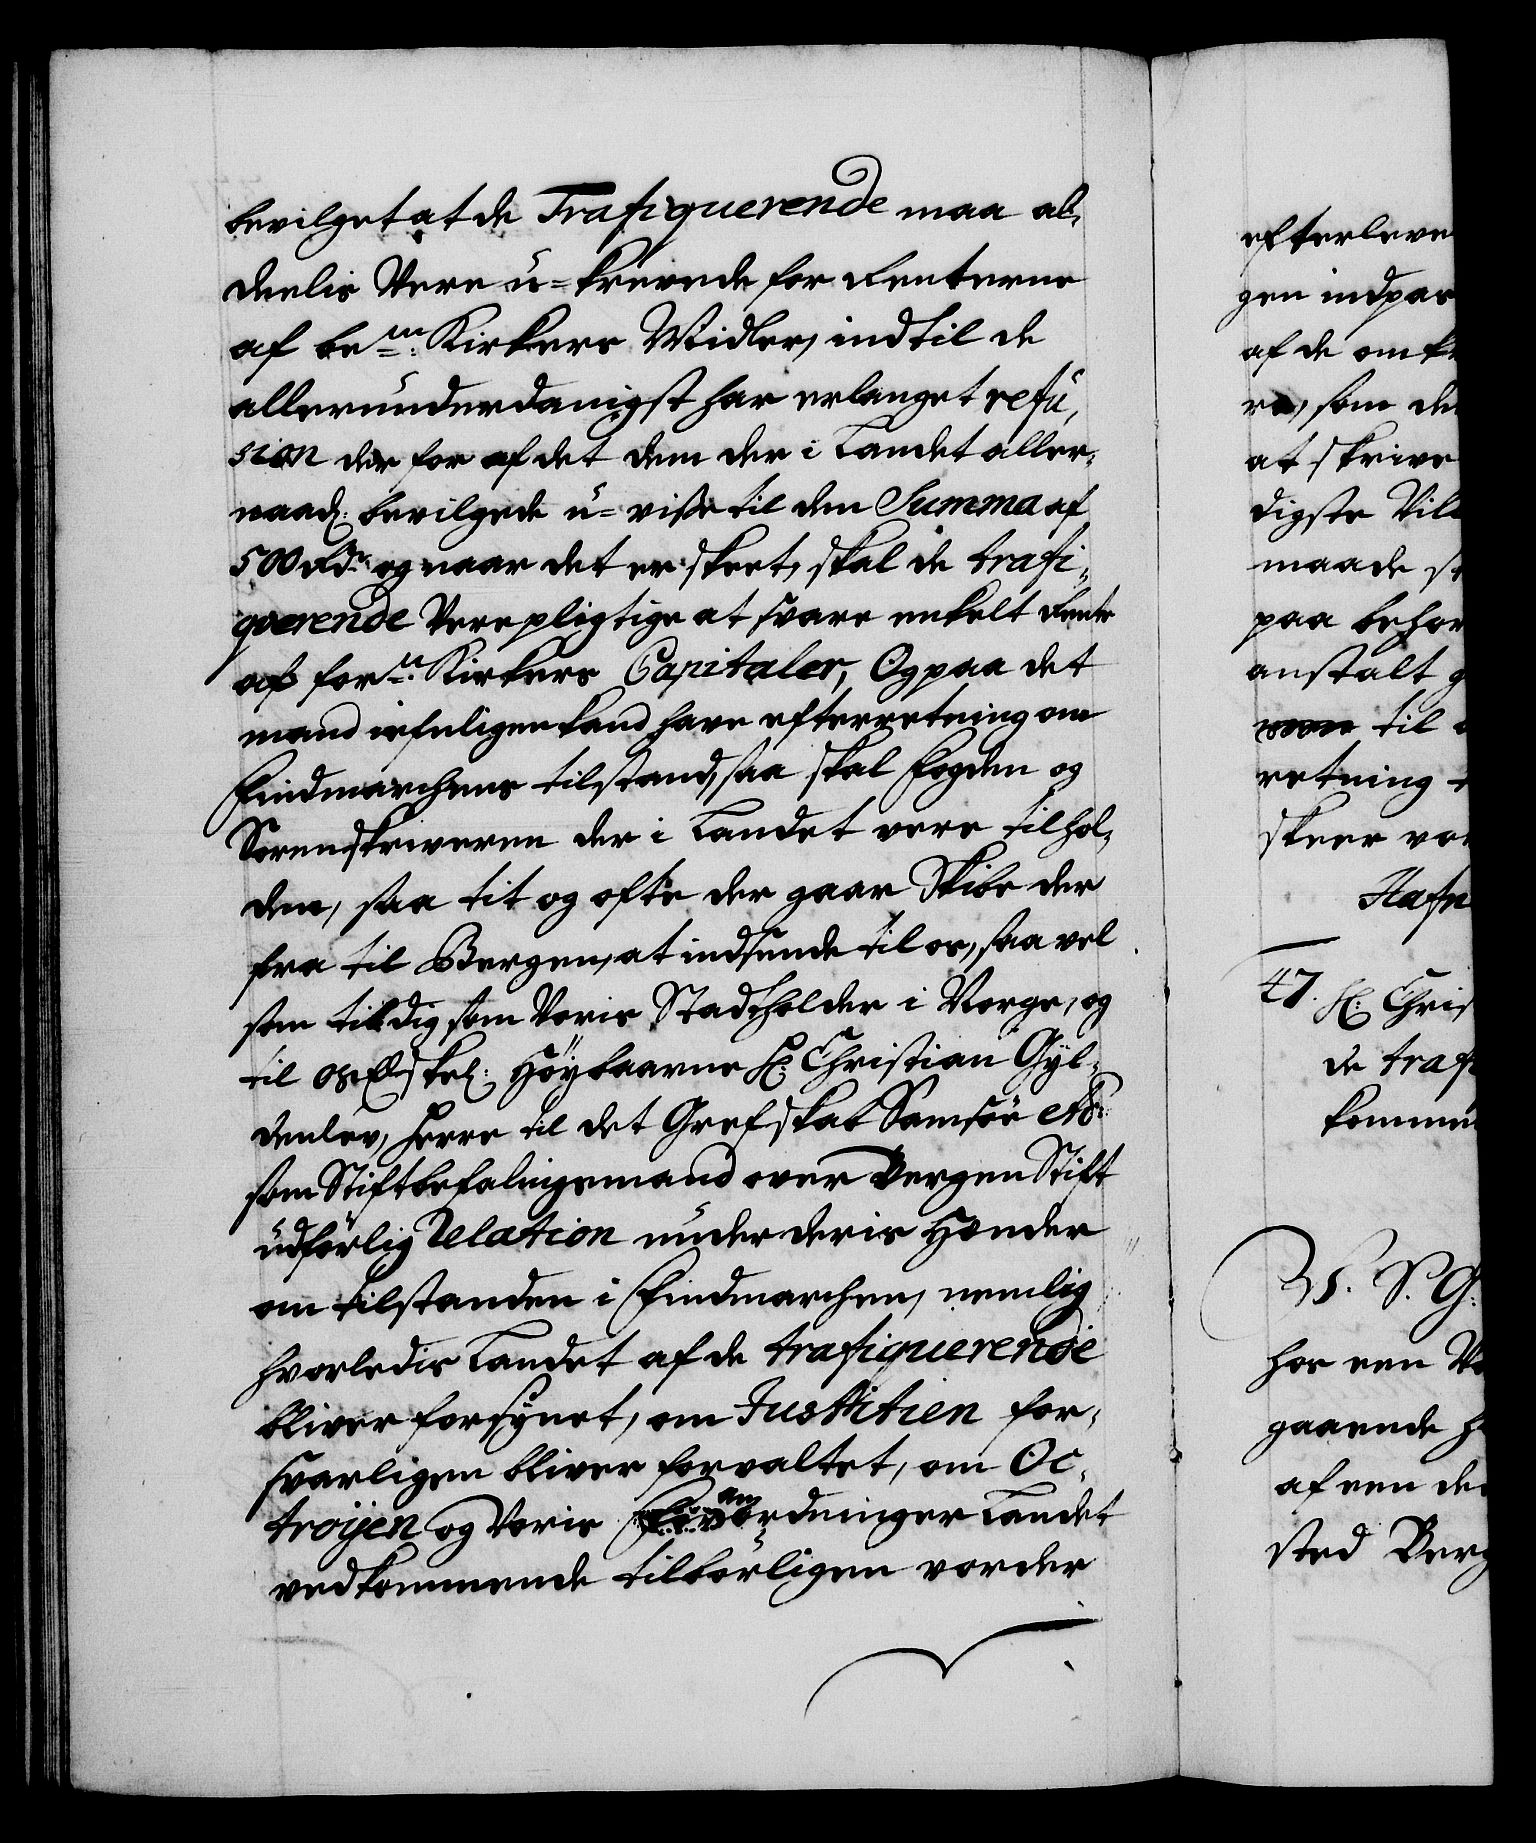 bevilget at de Trafiquerende maa al,
deelis Være u-krævede for Renterne
af bem:te Kirkers Midler, indtil de
allerunderdanigst har erlanget refu,
sion der for af det dem der i Landet aller,
naad: bevilgede u-visse til den Summa af
500 Rdr og naar det er skeet, skal de trafi,
qverende Være pligtige at svare enkelt Rente
af form:te Kirkers Capitaler, Og paa det
mand ideligen kand have efterretning om
Findmarchens tilstand, saa skal Fogden og
Sorenskriveren der i Landet være tilhol,
den, saa tit og ofte der gaar Skibe der
fra til Bergen, at indsende til os, saa vel
som til dig som Voris Stadtholder i Norge, og
til os Elskel: Høybaarne Hr: Christian Gyl,
denløv, Herre til det Grefskab Samsøe etc:
som Stiftbefalingsmand over Bergen Stift
udførlig Relation under deris Hænder
om tilstanden i Findmarchen, nemlig
hvorledis Landet af de trafiquerende
bliver forsynet, om Justitien for,
svarligen bliver forvaltet, om Oc,
troyen og Voris anordninger Landet
vedkommende tilbørligen vorder
efterleve
gen indpas
af de omk
re, som de
at skrive
digste Vil
maade s
paa behør
anstalt g
til
retning
skeer vo
Hafn
47. Hr: Chris
de traf
komme
V. S. G:
hos een V
gaaende h
af een de
sted Berg